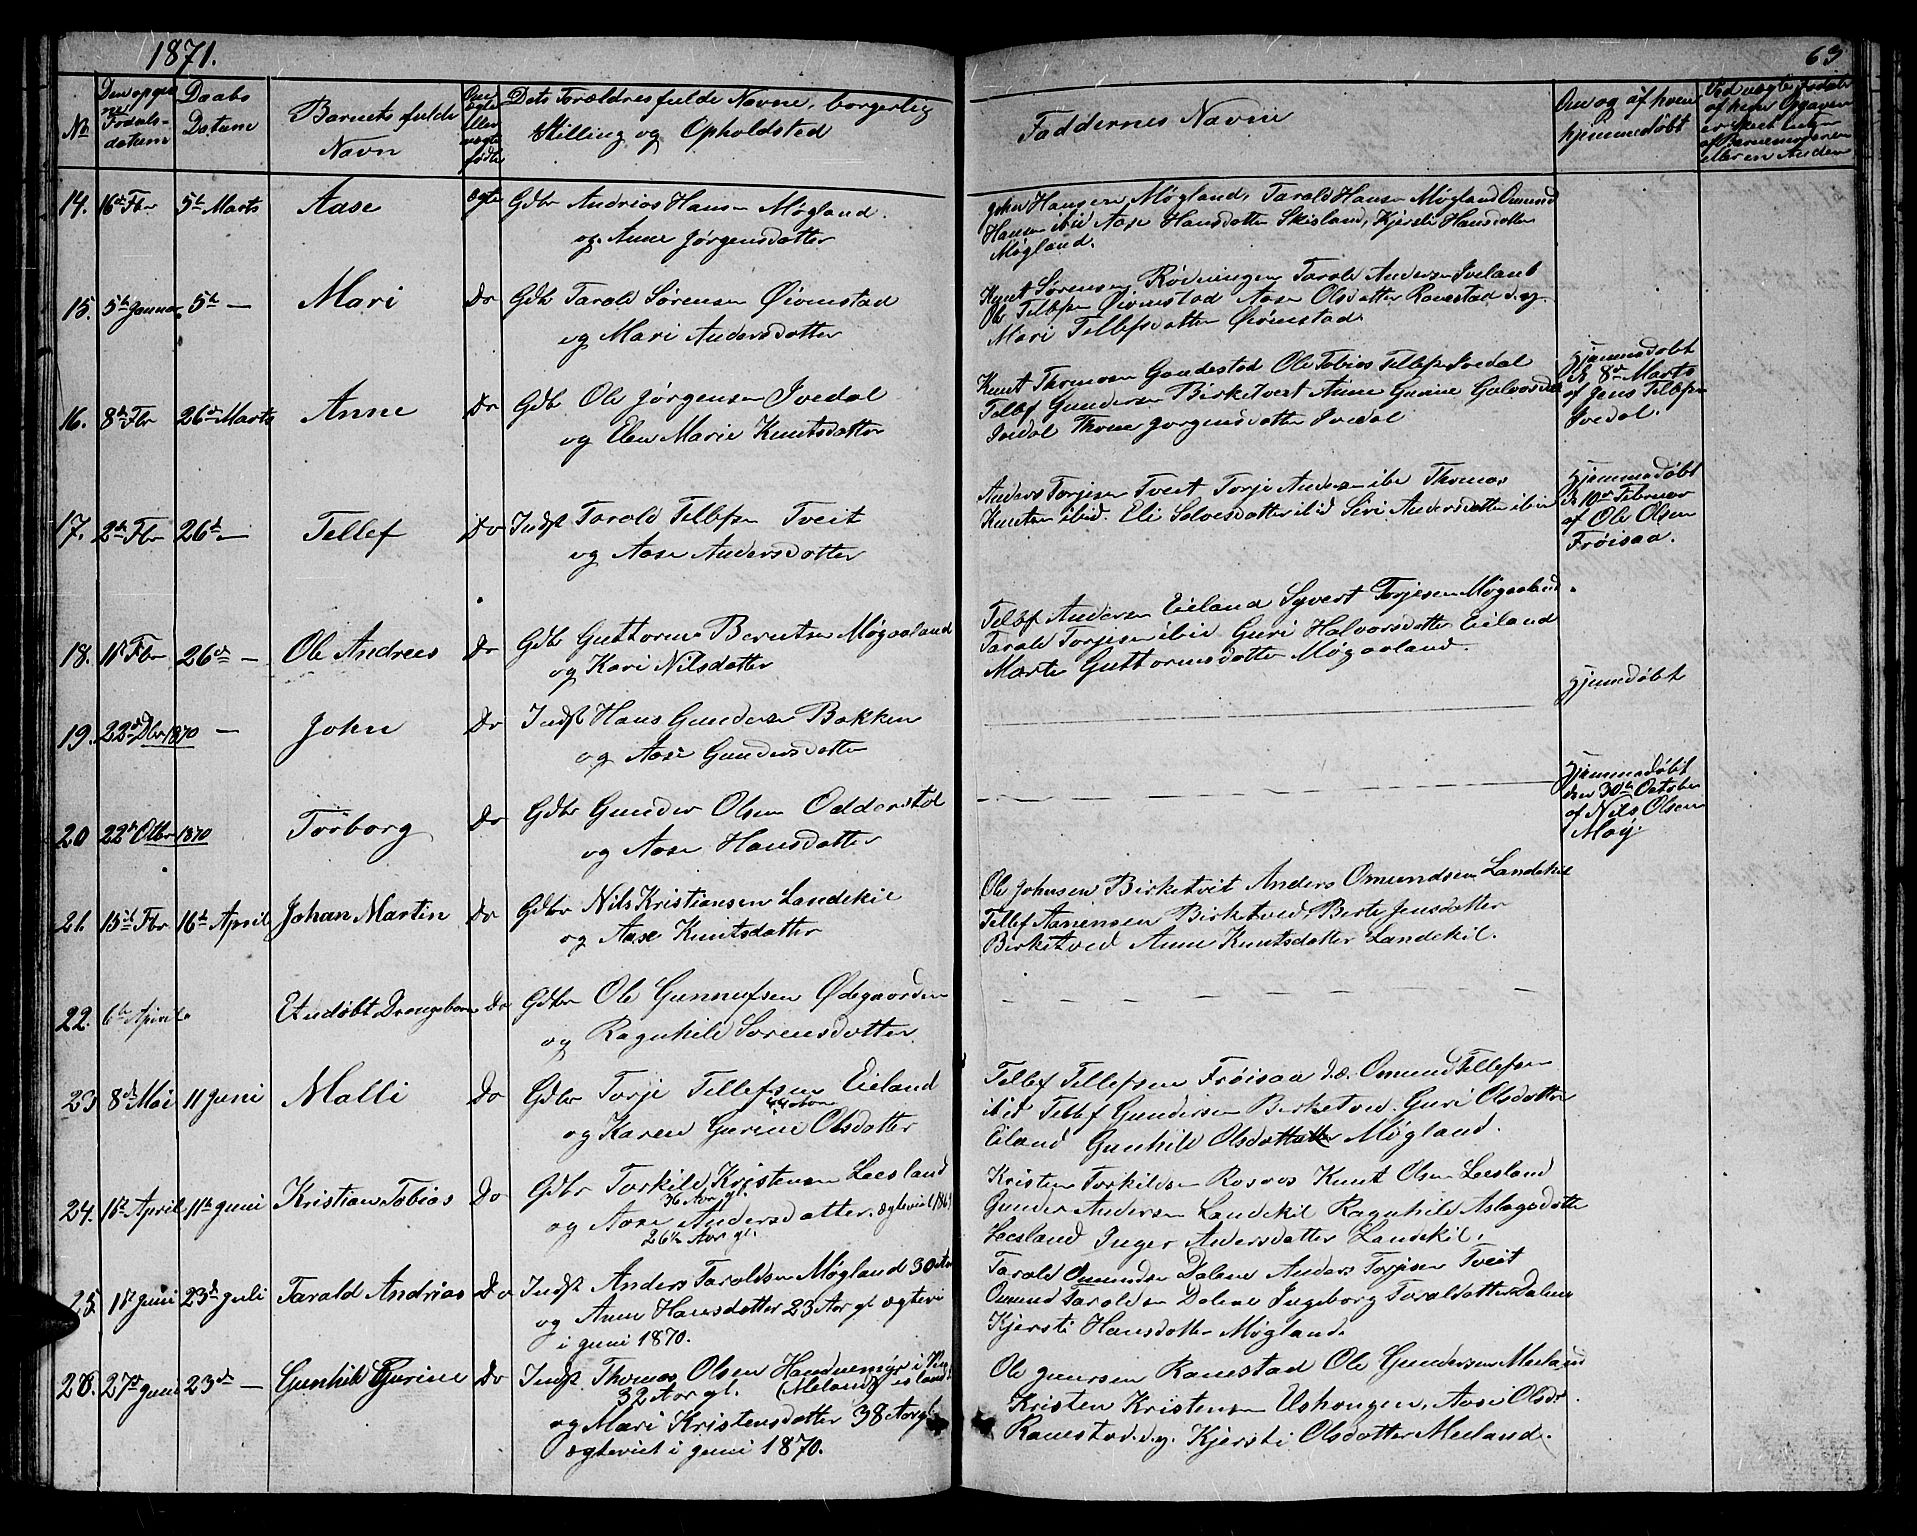 1871.
63
No
Den opgivne Fødselsdatum
Daabs Datum
Barnets fulde Navn
Om ægte eller uægte født
Dets Forældres fulde Navne, borgerlig
Stilling og Opholdsted
Faddernes Navne
Om og af hvem
hjemmedøbt
Ved uægte fødte
af hvem Opgaven
er skeet enten
af Barnemoderen
eller en Anden
14. 16de Fbr 5te Marts Aase ægte Gdbr Andrias Hansen Møgland
og Anne Jørgensdatter
John Hansen Møgland, Tarald Hansen Møgland Omund
Hansen ibid Aase Hansdatter Skisland, Kjersti Hansdatter
Møgland.
15. 5te Januar 5te — Mari Do Gdbr Tarald Sørensen Øvenstad
og Mari Andersdatter
Knut Sørensen Rødningen Tarald Andersen Iveland
Ole Tellefsen Aase Olsdatter Ranestad d.y.
Mari Tellefsdatter
16. 8de Fbr 26de Marts Anne Do Gdbr Ole Jørgensen Ivedal
og Elen Marie Knutsdatter
Knut Thomasen Gaadestad Ole Tobias Tellefsen Ivedal
Tellef Gundersen Birketveit Anne Gurine
Ivedal Thone Jørgensdatter Ivedal
Hjemmedøbt
8de Marts
af Jens Tellefsen
Ivedal.
17. 2den Fbr 26de — Tellef Do Indst Tarald Tellefsen Tveit
og Aase Andersdatter
Anders Torjesen Tveit Torje Andersen ibid Thomas
Knutsen ibid. Eli Salvesdatter ibid Siri Andersdatter ibid
Hjemmedøbt
d 10de Februar
af Ole Olsen
Frøisaa.
18. Fbr 26de — Ole Andreas Do Gdbr Guttorm Berntsen Møgaaland
og Kari Nilsdatter
Tellef Andersen Eieland Syvert Torjesen Møgaaland
Tarald Torjesen ibid Guri Halvorsdatter Eiland
Marte Guttormsdatter Møgaaland.
19. 22de Dbr 1870 — John Do Indst Hans Gundersen Bakken
og Aase Gundersdatter
Hjemdøbt
20 22de Otbr 1870 Torborg Do Gdbr Gunder Olsen Odderstøl
og Aase Hansdatter
Hjemmedøbt
den 30te October
af Nils Olsen
Moy.
21. 15de Fbr 16de April Johan Martin Do Gdbr Nils Kristiansen Landekil
og Aase Knutsdatter
Ole Johnsen Birketvit Anders Omundsen Landekil
Tellef Aanensen Birketved, Berte Jensdatter
Birketved Anne Knutsdatter Landekil.
22. 6te April Et udøbt Drengebarn Do Gdbr Ole Gunnufsen Ødegaarden
og Ragnhild Sørensdatter
23 8de Mai 11 Juni Malli Do Gdbr Torje Tellefsen Eieland
og Karen Gurine Olsdatter
Tellef Tellefsen Frøisaa d.æ. Omund Tellefsen
ibid Tellef Gundersen Birketved. Guri Olsdatter
Eiland Gunhild Olsdatter Møgland.
24. April 11te Juni Kristian Tobias Do Gdbr Torkild Kristensen Leesland
36 Aar gl.
og Aase Andersdatter ægteviet
26½ Aar gl.
Kristen Torkildsen Rosvos Knut Olsen Leesland
Gunder Andersen Landekil Ragnhild Aslagsdatter
Leesland Inger Andersdatter Landekil.
25. 1ste Juni 23de Juli Tarald Andrias Do Indst Anders Taraldsen Møgland 30 Aar
og Anne Hansdatter 23 Aar gl ægtevi
i Juni 1870.
Tarald Omundsen Dalene Anders Torjesen Tveit
Omund Taraldsen Dalene Ingeborg Taraldsdatter Dalene
Kjersti Hansdatter Møgland.
26. 27de Juni 23de — Gunhild Gurine Do Indst. Thomas Olsen
32 Aar gl. (Meland)
og Mari Kristensdatter 38 Aar gl
ægteviet i Juni 1870.
Ole Gunersen Ranestad Ole Gundersen Meeland
Kristen Kristensen Ushougen, Aase Olsdr
Ranestad d.y. Kjersti Olsdatter Meeland.